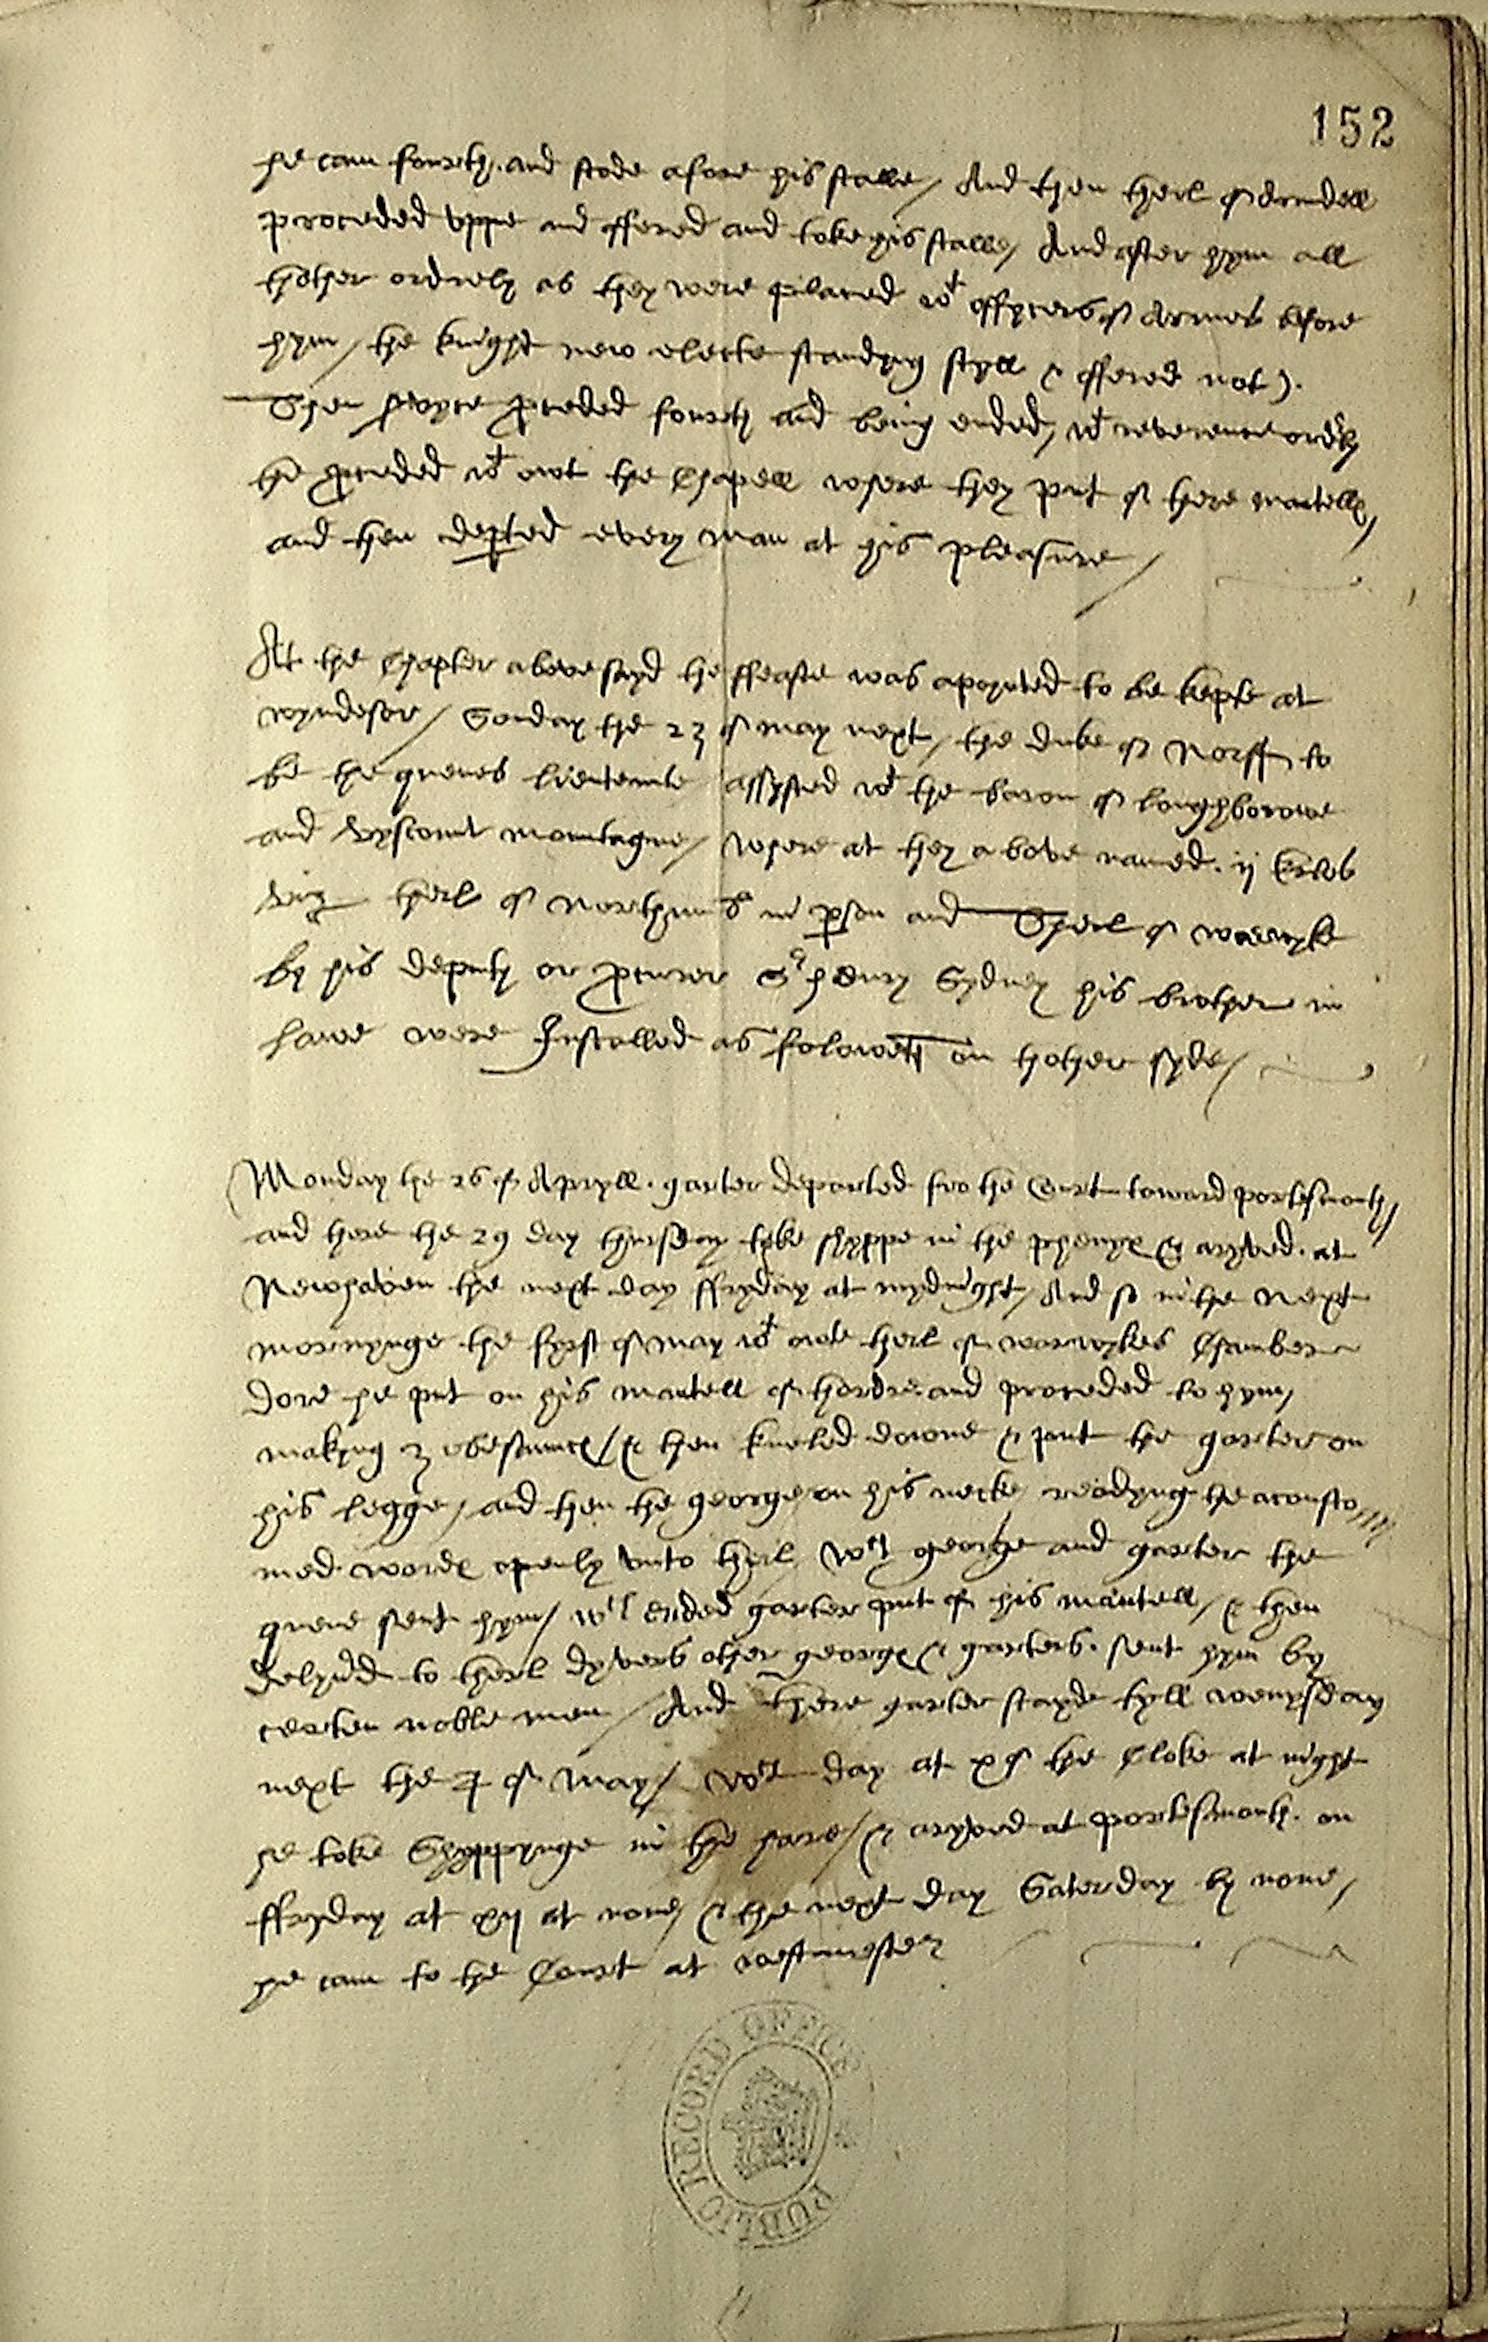 152
he cam fourth. and stode afore his stalle / And then therl of Arundell
proceded uppe and offered and toke his stalle / And after hym all
thother orderly as they were placed wt offycers of Armes before
hym / the knight new electe standyng styll & offered not ).
Then servyce proceded fourth and being ended, wt reverence orderly
the proceded wt owt the Chapell where they put of there mantelles /
and then departed every man at his pleasure /
At the Chapter above sayd the ffeaste was apoynted to be kepte at
wyndesor / Sonday the 23 of may next / the duke of Norff to
be the quenes lieutenante assysted wt the baron of loughborowe
and vyscount mountague / where at they above named. ij knights
viz therl of Northumb in person and Therl of warwyke
by his deputy or procurer Sr henry Sydney his brother in
lawe were Installed as foloweth on thother syde /
Monday the 26 of Apryll. garter departed fro the Court toward portesmouth /
and there the 29 day thursday toke shyppe in the phenyx & aryved. at
Newhaven the next day ffryday at mydnight / And so in the next
mornynge the fyrst of may wt owte therl of warwykes Chamber
dore he put on his mantell of thordre. and proceded to hym /
making 3 obesaunces / & then kneled downe & put the garter on
his legge / and then the george on his necke reading the acousto
med wordes openly unto therl / wch george and garter the
quene sent hym / wch ended garter put of his mantell / & then
delyvred to therl dyvers other georges & garters. sent hym by
certen noble men / And there garter stayde tyll wenysday
next the 4 of may / wch day at x of the Cloke at night
he toke Shyppynge in the hare / & aryved at portesmouth. on
ffryday at xij at none / & the next day Saterday by none /
he cam to the Court at westmester
PUBLIC RECORD OFFICE